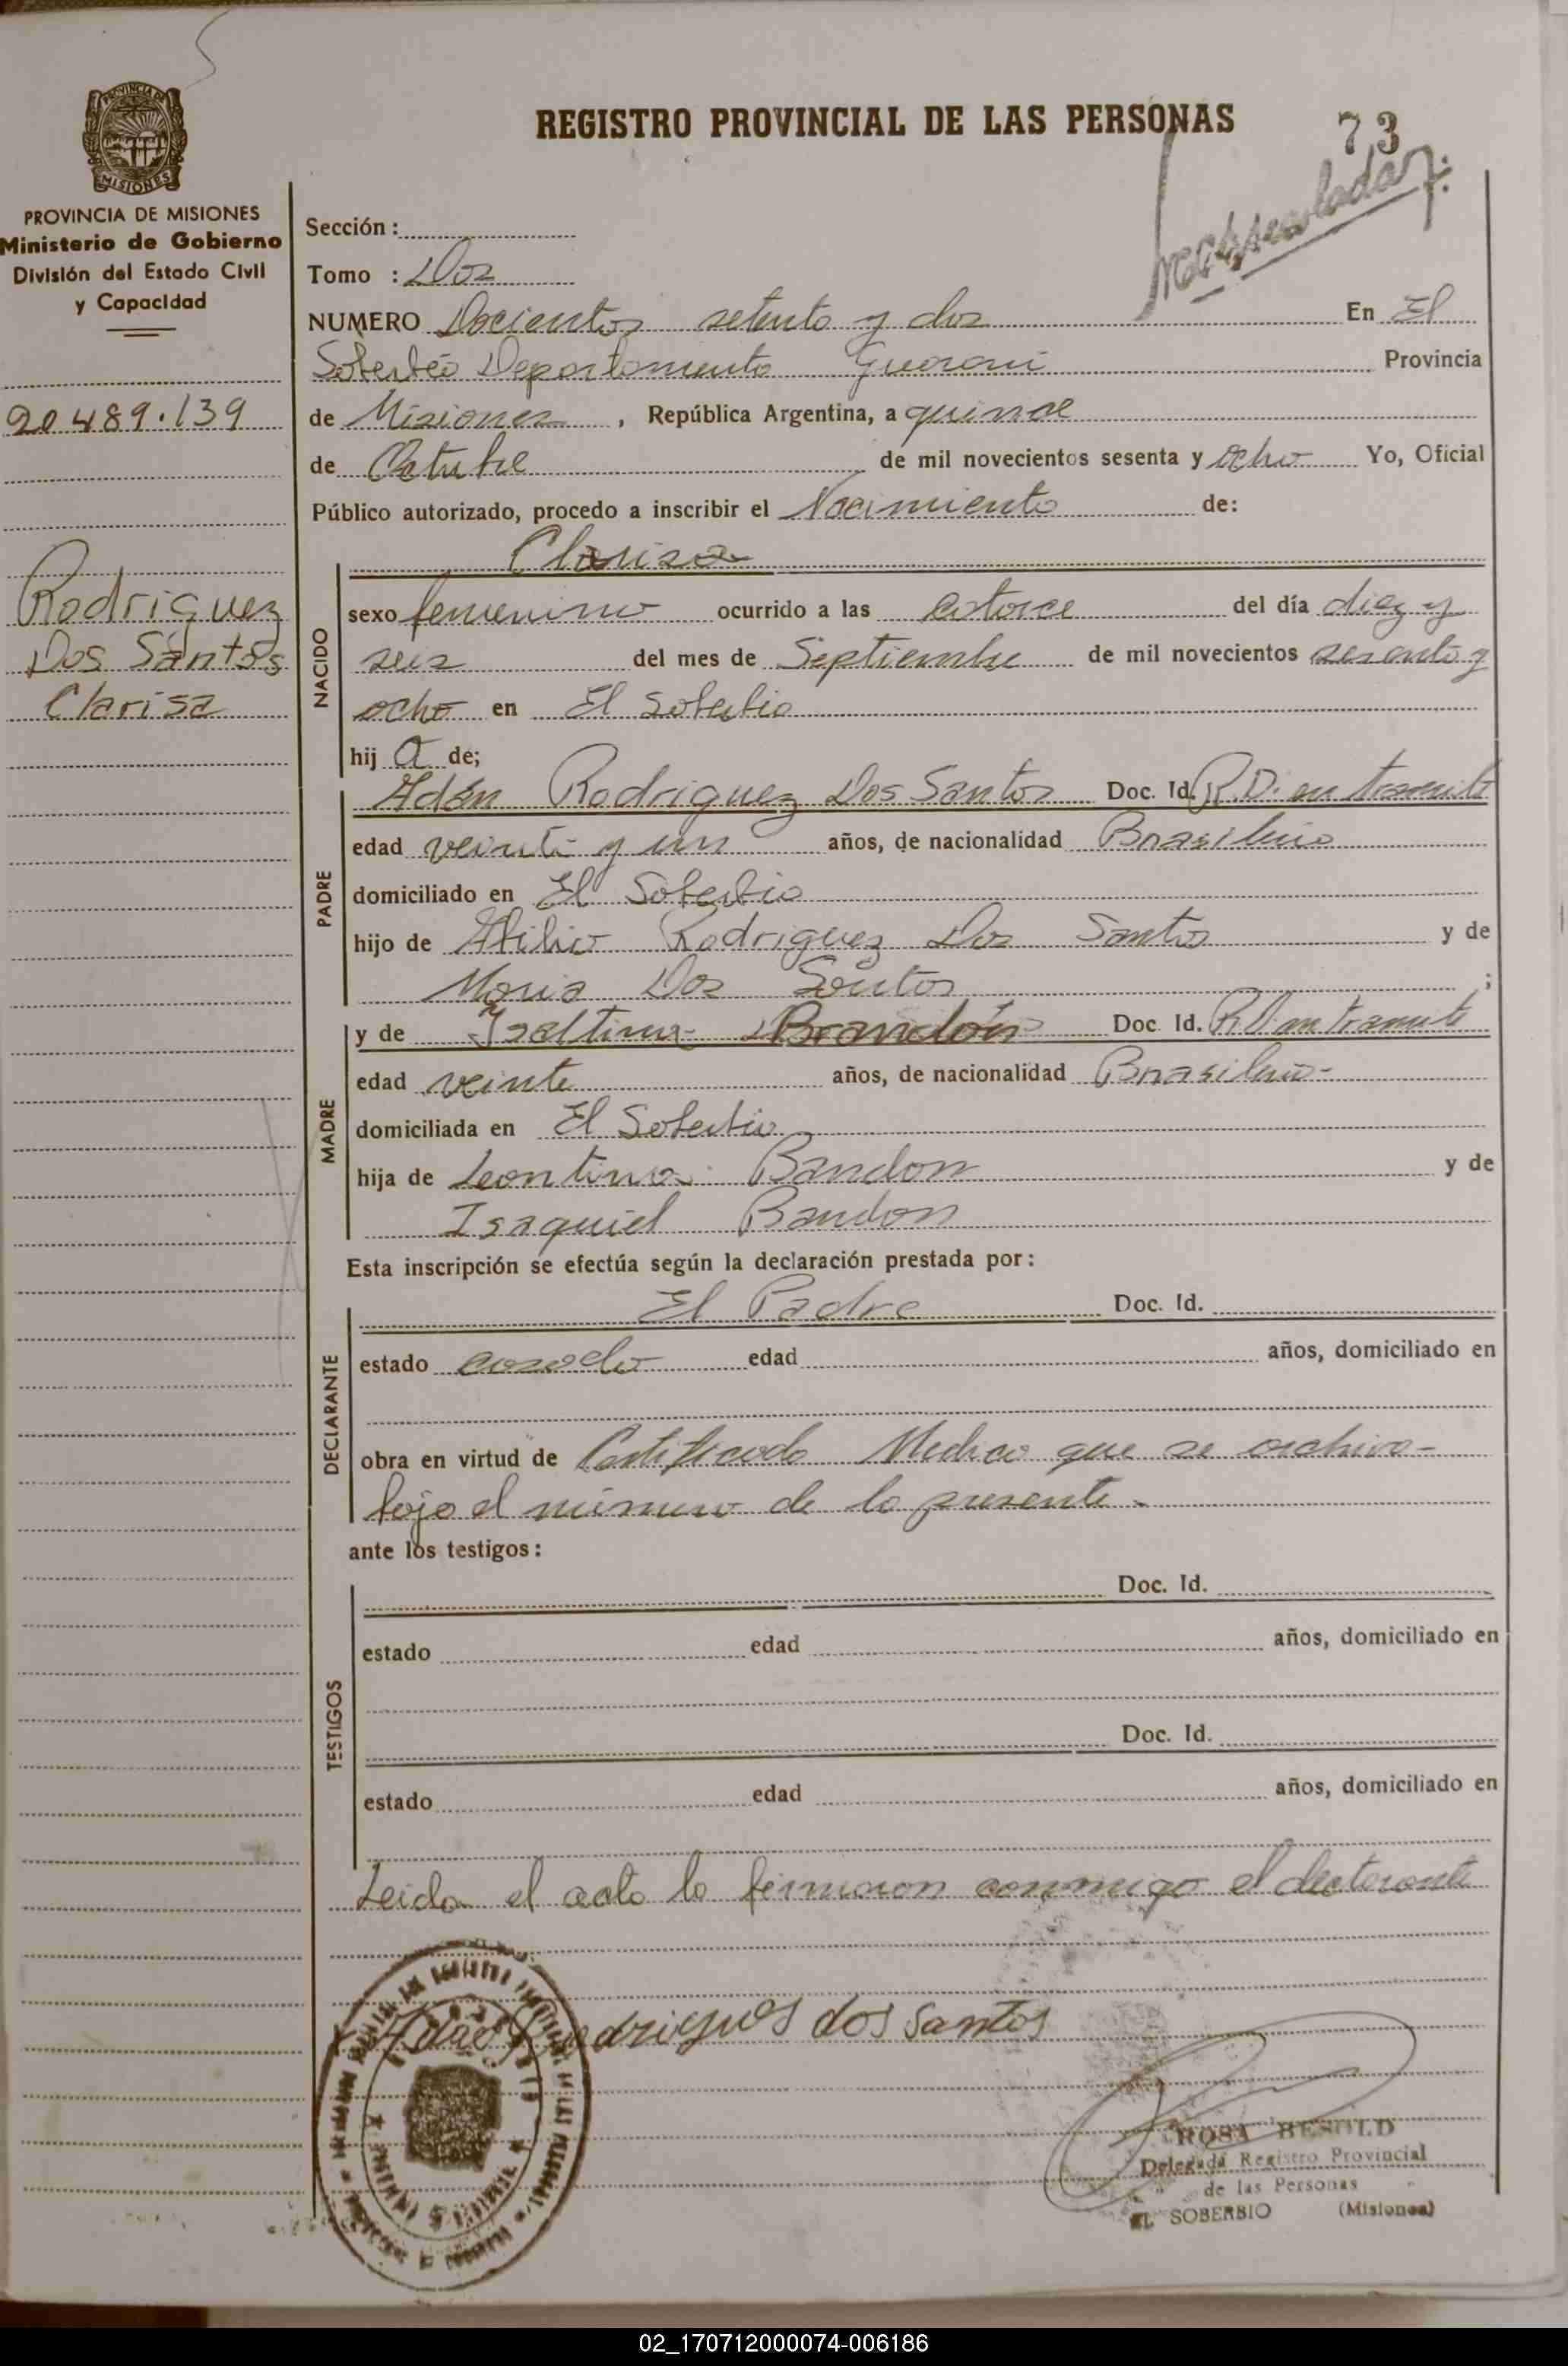 REGISTRO PROVINCIAL DE LAS PERSONAS
73
PROVINCIA DE MISIONES
MISIONES
PROVINCIA DE MISIONES
Ministerio de Gobierno
División del Estado Civil
y Capacidad
20.489.139
Rodriguez
Dos Santos
Clarisa
Sección :
Tomo : Dos
NUMERO Docientos setenta y dos En El
Soberbio Departamento Guarani Provincia
de Misiones , República Argentina, a quince
de Octubre de mil novecientos sesenta y ocho Yo, Oficial
Público autorizado, procedo a inscribir el Nacimiento de:
Clarisa
NACIDO
sexo femenino ocurrido a las catorce del día diez y
seis del mes de Septiembre de mil novecientos sesenta y
ocho en El Soberbio
hij a de;
PADRE
Adán Rodriguez Dos Santos Doc. Id. R.D. en tramite
edad veinte y un años, de nacionalidad Brasileño
domiciliado en El Soberbio
hijo de Abilio Rodriguez Dos Santos y de
Maria Dos Santos ;
MADRE
y de Isaltina Brandón Doc. Id. R.D en tramite
edad veinte años, de nacionalidad Brasileña
domiciliada en El Soberbio
hija de Leontina Bandon y de
Isaquiel Bandon
Esta inscripción se efectúa según la declaración prestada por :
DECLARANTE
El Padre Doc. Id.
estado casado edad años, domiciliado en
obra en virtud de Certificado Medico que se archiva
bajo el número de la presente.
ante los testigos :
TESTIGOS
Doc. Id.
estado edad años, domiciliado en
Doc. Id.
estado edad años, domiciliado en
Leida el acta la firmaron conmigo el declarante
Adão Rodrigues dos Santos
ROSA BESOLD
Delegada Registro Provincial
de las Personas
EL SOBERBIO (Misiones)
02_170712000074-006186